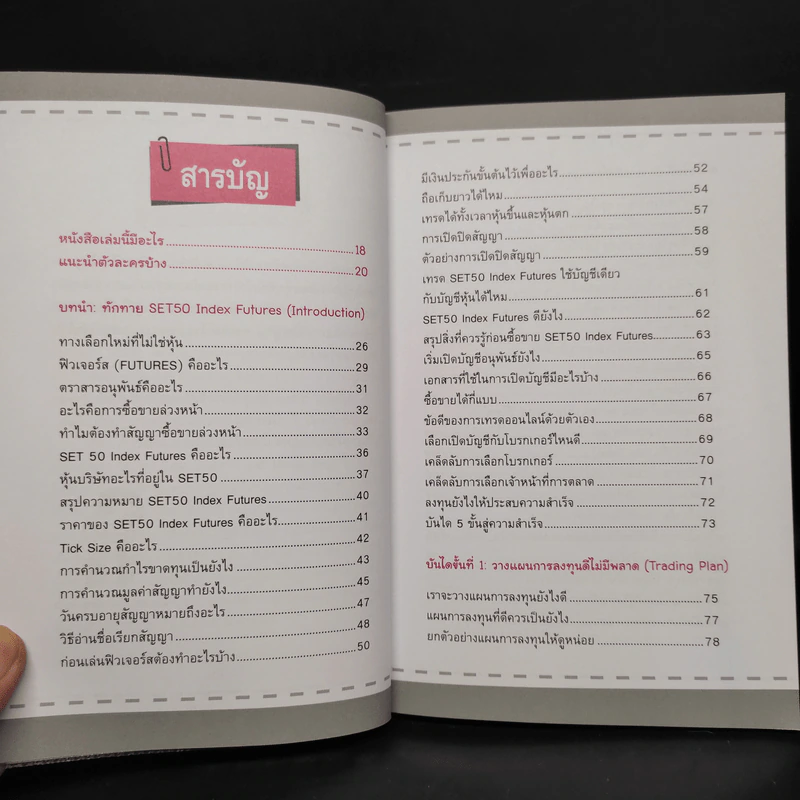 สารบัญ
หนังสือเล่มนี้มีอะไร 18
แนะนำตัวละครบ้าง 20
บทนำ: ทักทาย SET50 Index Futures (Introduction)
ทางเลือกใหม่ที่ไม่ใช่หุ้น 26
ฟิวเจอร์ส (FUTURES) คืออะไร 29
ตราสารอนุพันธ์คืออะไร 31
อะไรคือการซื้อขายล่วงหน้า 32
ทำไมต้องทำสัญญาซื้อขายล่วงหน้า 33
SET 50 Index Futures คืออะไร 36
หุ้นบริษัทอะไรที่อยู่ใน SET50 37
สรุปความหมาย SET50 Index Futures 40
ราคาของ SET50 Index Futures คืออะไร 41
Tick Size คืออะไร 42
การคำนวณกำไรขาดทุนเป็นยังไง 43
การคำนวณมูลค่าสัญญาทำยังไง 45
วันครบอายุสัญญาหมายถึงอะไร 47
วิธีอ่านชื่อเรียกสัญญา 48
ก่อนเล่นฟิวเจอร์สต้องทำอะไรบ้าง 50
มีเงินประกันขั้นต้นไว้เพื่ออะไร 52
ถือเก็บยาวได้ไหม 54
เทรดได้ทั้งเวลาหุ้นขึ้นและหุ้นตก 57
การเปิดปิดสัญญา 58
ตัวอย่างการเปิดปิดสัญญา 59
เทรด SET50 Index Futures ใช้บัญชีเดียว
กับบัญชีหุ้นได้ไหม 61
SET50 Index Futures ดียังไง 62
สรุปสิ่งที่ควรรู้ก่อนซื้อขาย SET50 Index Futures 63
เริ่มเปิดบัญชีอนุพันธ์ยังไง 65
เอกสารที่ใช้ในการเปิดบัญชีมีอะไรบ้าง 66
ซื้อขายได้กี่แบบ 67
ข้อดีของการเทรดออนไลน์ด้วยตัวเอง 68
เลือกเปิดบัญชีกับโบรกเกอร์ไหนดี 69
เคล็ดลับการเลือกโบรกเกอร์ 70
เคล็ดลับการเลือกเจ้าหน้าที่การตลาด 71
ลงทุนยังไงให้ประสบความสำเร็จ 72
บันได 5 ขั้นสู่ความสำเร็จ 73
บันไดขั้นที่ 1: วางแผนการลงทุนดีไม่มีพลาด (Trading Plan)
เราจะวางแผนการลงทุนยังไงดี 75
แผนการลงทุนที่ดีควรเป็นยังไง 77
ยกตัวอย่างแผนการลงทุนให้ดูหน่อย 78